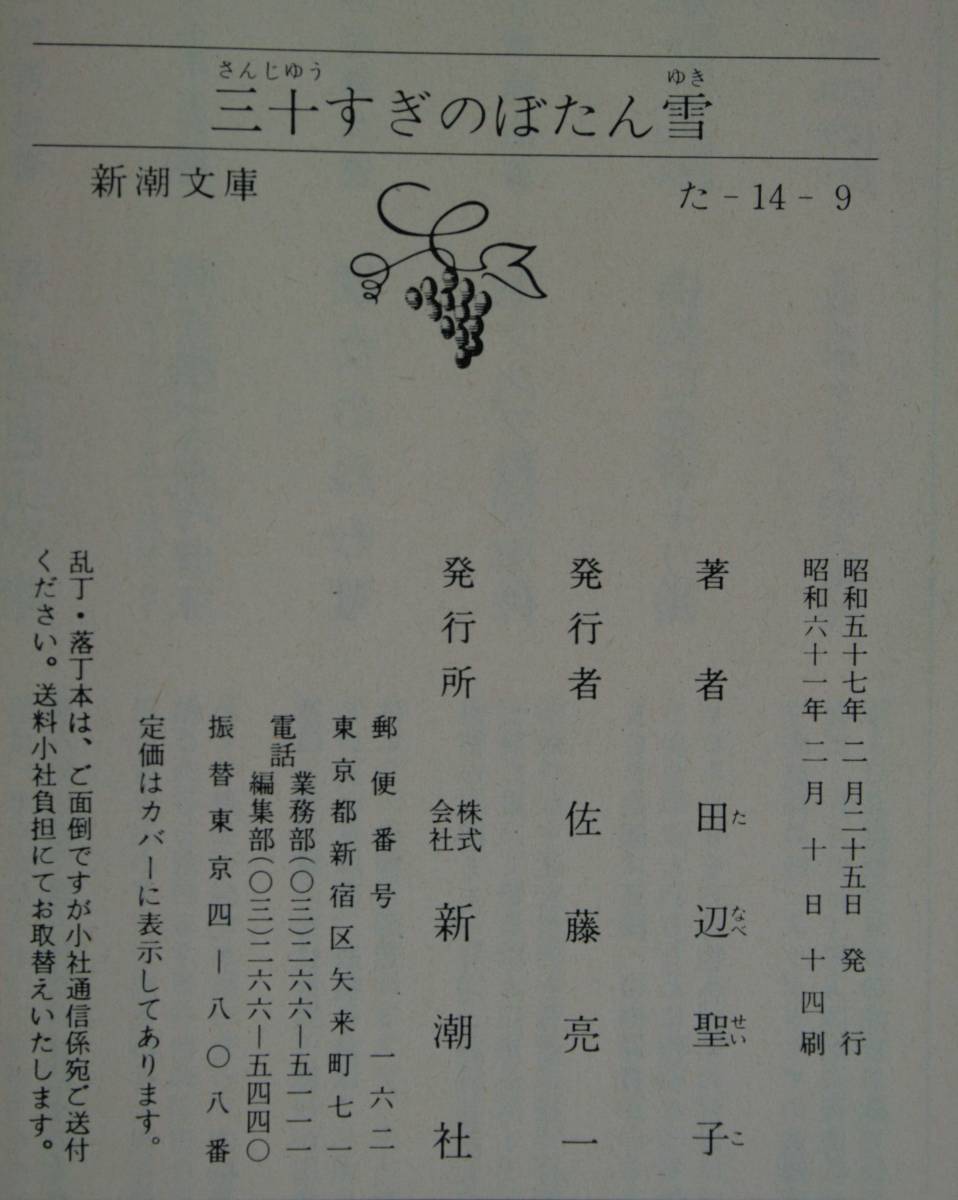 さんじゆう ゆき
三十すぎのぼたん雪
新潮文庫 た-14-9
昭和五十七年二月二十五日発行
昭和六十一年二月十日十四刷
著者 田辺聖子
たなべせいこ
発行者 佐藤亮一
発行所 株式会社 新潮社
郵便番号 一六二
東京都新宿区矢来町七一
電話 業務部(〇三)二六六―五一一一
編集部(〇三)二六六―五四四〇
振替東京四―八〇八番
定価はカバーに表示してあります。
乱丁・落丁本は、ご面倒ですが小社通信係宛ご送付
ください。送料小社負担にてお取替えいたします。